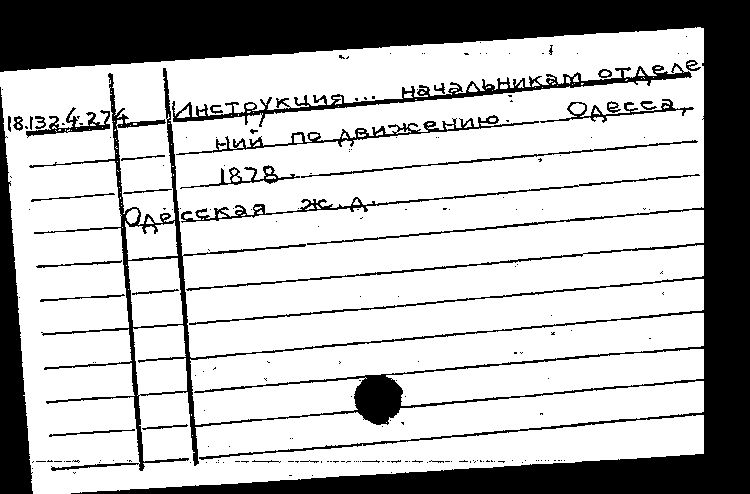 18.132.4.274 Инструкция... начальникам отделе-
ний по движению. Одесса,
1878.
Одесская ж.д.